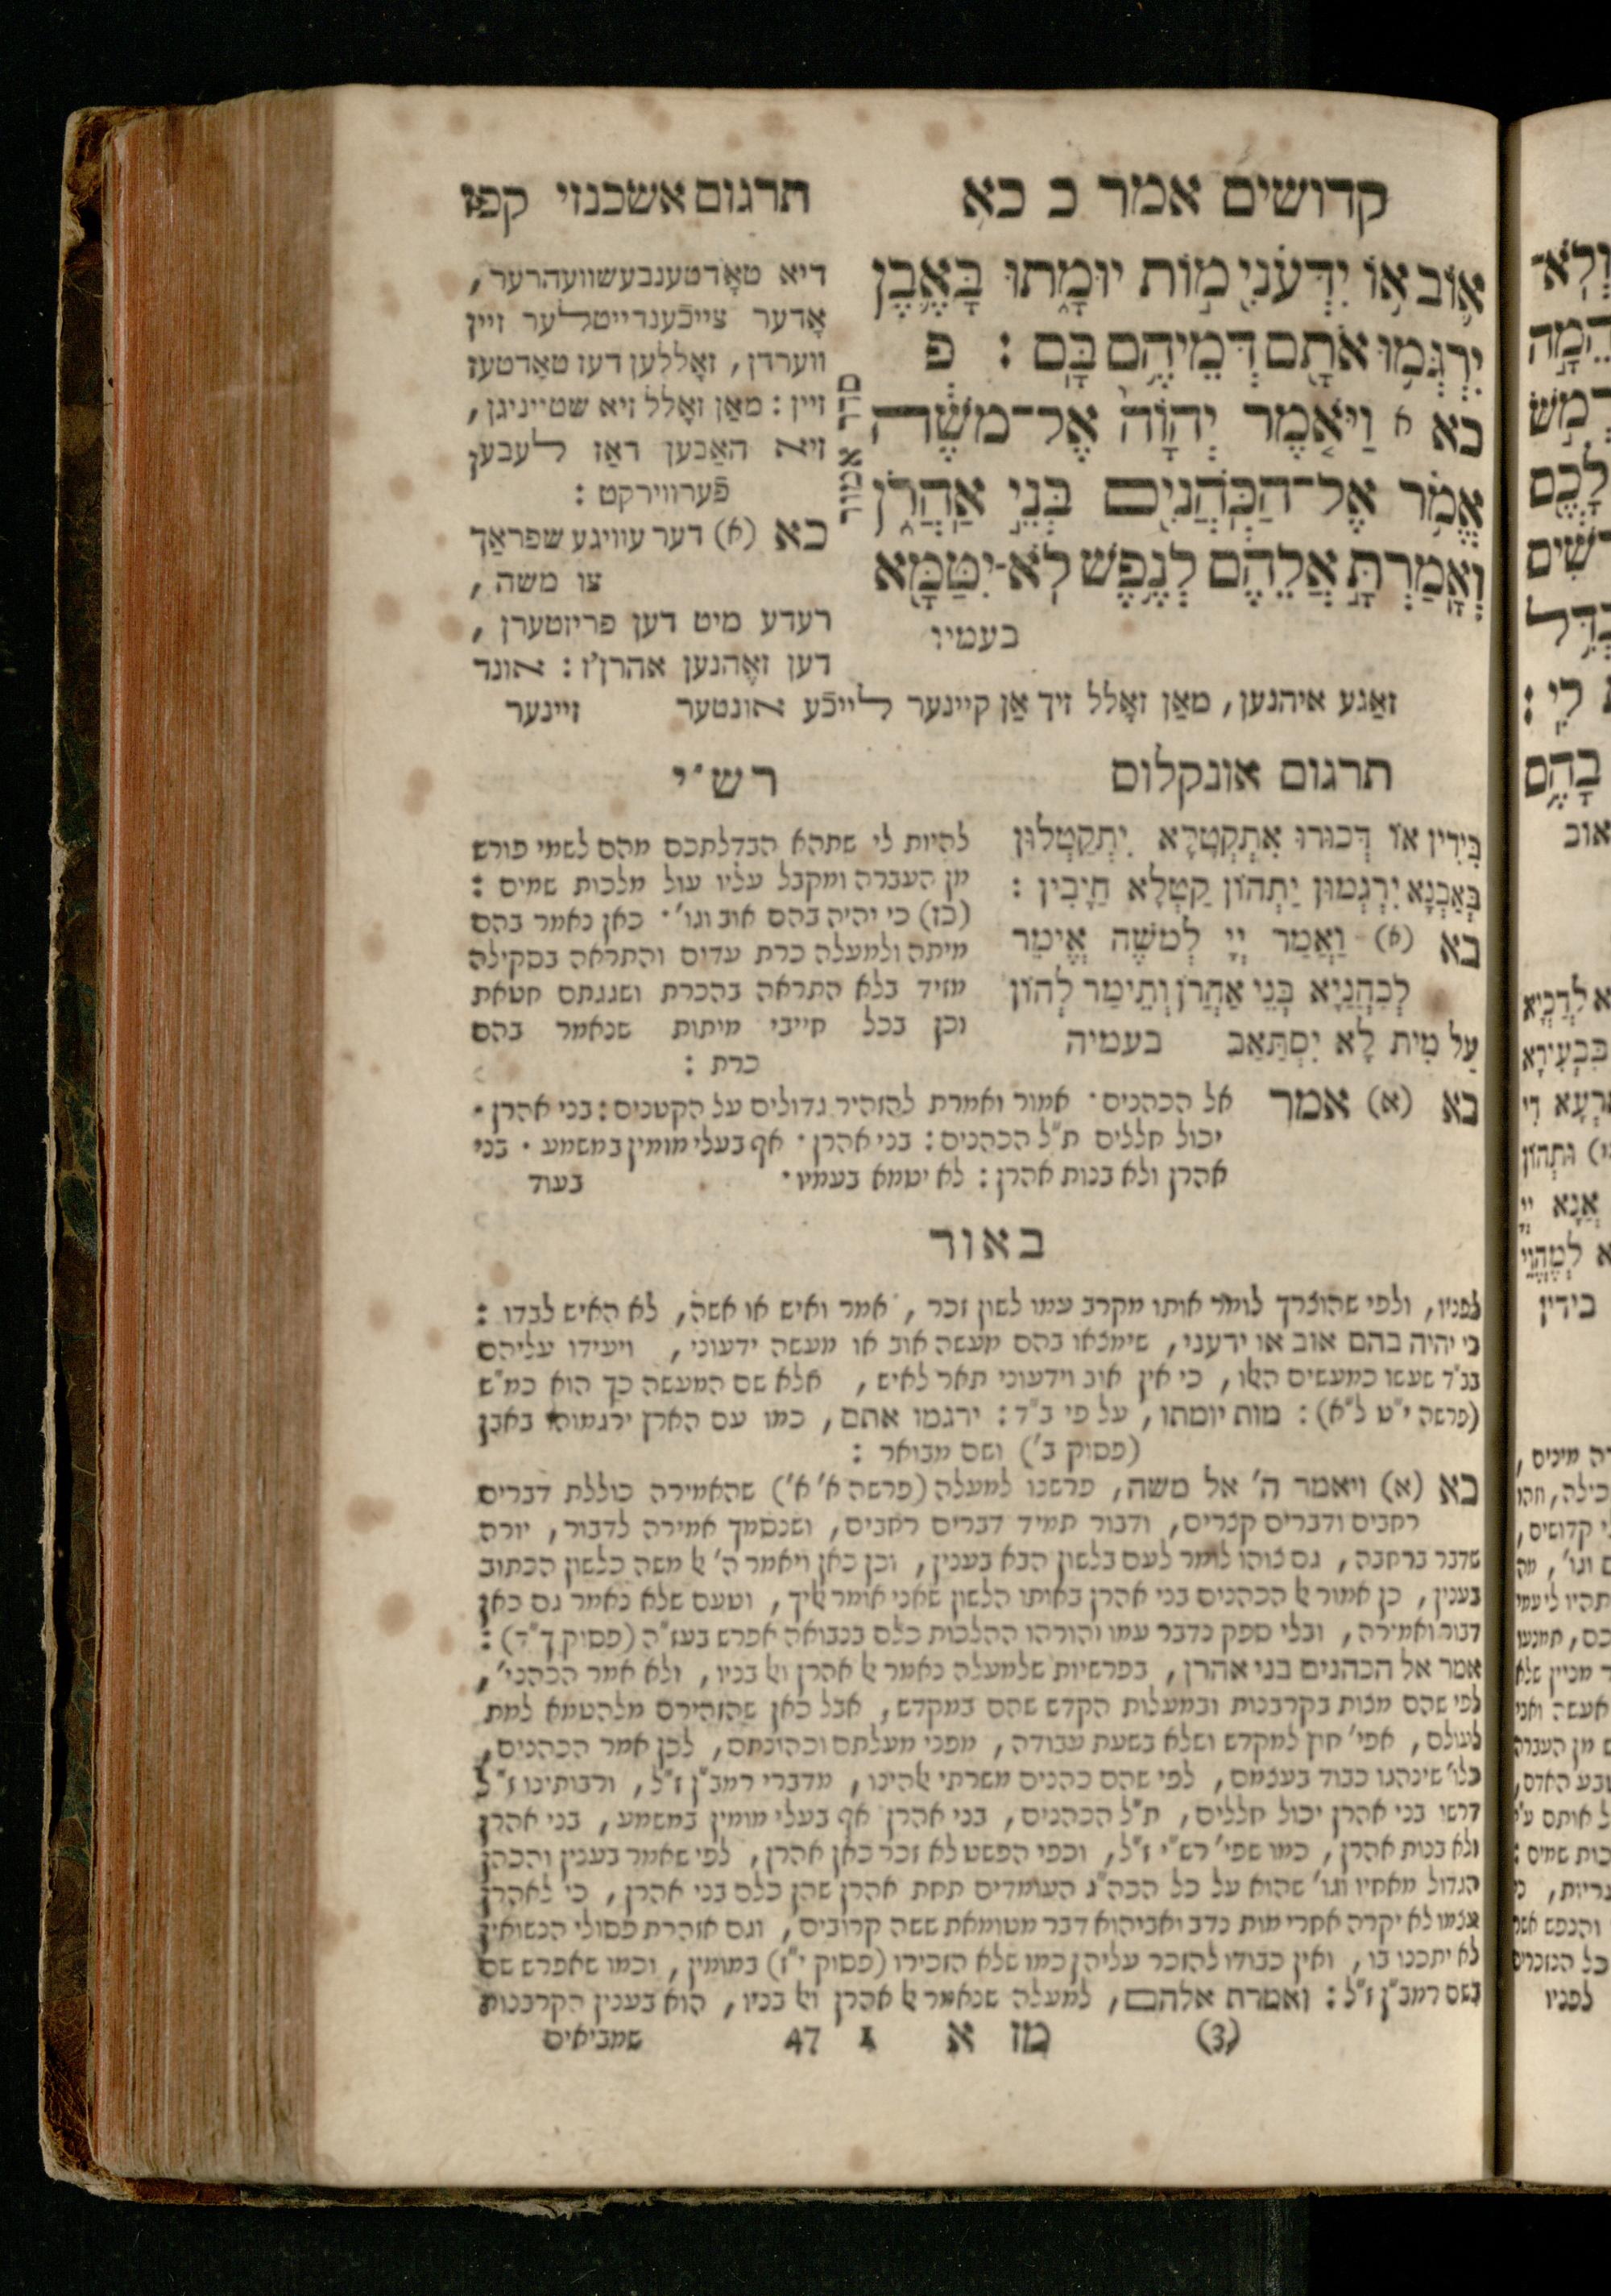 קדושים אמר כ כא
תרגום אשכנזי קפז
א֥וֹב א֛וֹ יִדְּעֹנִ֖י מ֣וֹת יוּמָ֑תוּ בָּאֶ֛בֶן
יִרְגְּמ֥וּ אֹתָ֖ם דְּמֵיהֶ֥ם בָּֽם׃ פ
סדר אמור
כא א וַיֹּ֤אמֶר יְהוָֹה֙ אֶל־מֹשֶׁ֔ה
אֱמֹ֥ר אֶל־הַכֹּהֲנִ֖ים בְּנֵ֣י אַהֲרֹ֑ן
וְאָמַרְתָּ֣ אֲלֵהֶ֔ם לְנֶ֥פֶשׁ לֹֽא־יִטַּמָּ֖א
בעמיו
דיא טאָדטענבעשוועהרער,
אָדער צייכֿענדייטלער זיין
ווערדן, זאָללען דעז טאָדטעז
זיין: מאַן זאָלל זיא שטייניגן,
זיא האַבען דאַז לעבען
פֿערווירקט:
כא (א) דער עוויגע שפראַך
צו משה,
רעדע מיט דען פריזטערן,
דען זאָהנען אהרן'ז: אונד
זאַגע איהנען, מאַן זאָלל זיך אַן קיינער לייכֿע אונטער זיינער
תרגום אונקלוס
בִּידִין אוֹ דְּכוּרוּ אִתְקְטָלָא יִתְקַטְלוּן
בְּאַבְנָא יִרְגְמוּן יַתְהוֹן קַטְלָא חַיָבִין:
כא (א) וַאֲמַר יְיָ לְמשֶׁה אֱימַר
לְכַהֲנַיָא בְּנֵי אַהֲרֹן וְתֵימַר לְהוֹן
עַל מִית לָא יִסְתָּאַב בעמיה
רש״י
להיות לי שתהא הבדלתכם מהם לשמי פורש
מן העברה ומקבל עליו עול מלכות שמים:
(כז) כי יהיה בהם אוב וגו'. כאן נאמר בהם
מיתה ולמעלה כרת עדים והתראה בסקילה
מזיד בלא התראה בהכרת ושגגתם חטאת
וכן בכל חייבי מיתות שנאמר בהם
כרת:
כא (א) אמר אל הכהנים. אמור ואמרת להזהיר גדולים על הקטנים: בני אהרן.
יכול חללים ת״ל הכהנים: בני אהרן. אף בעלי מומין במשמע. בני
אהרן ולא בנות אהרן: לא יטמא בעמיו. בעוד
באור
לפניו, ולפי שהוצרך לומר אותו מקרב עמו לשון זכר, אמר ואיש או אשה, לא האיש לבדו:
כי יהיה בהם אוב או ידעני, שימצאו בהם מעשה אוב או מעשה ידעוני, ויעידו עליהם
בב״ד שעשו כמעשים האלו, כי אין אוב וידעוני תאר לאיש, אלא שם המעשה כך הוא כמ״ש
(פרשה י״ט ל״א): מות יומתו, על פי ב״ד: ירגמו אתם, כמו עם הארץ ירגמוהו באבן
(פסוק ב') ושם מבואר:
כא (א) ויאמר ה' אל משה, פרשנו למעלה (פרשה א' א') שהאמירה כוללת דברים
רחבים ודברים קצרים, ודבור תמיד דברים רחבים, ושנסמך אמירה לדבור, יורה
שדבר ברחבה, גם צוהו לומר לעם בלשון הבא בענין, וכן כאן ויאמר ה' אל משה כלשון הכתוב
בענין, כן אמור אל הכהנים בני אהרן באותו הלשון שאני אומר אליך, וטעם שלא נאמר גם כאן
דבור ואמירה, ובלי ספק נדבר עמו והורהו ההלכות כלם בנבואה אפרש בעז״ה (פסוק ך״ד):
אמר אל הכהנים בני אהרן, בפרשיות שלמעלה נאמר אל אהרן ואל בניו, ולא אמר הכהני',
לפי שהם מצות בקרבנות ובמעלות הקדש שהם במקדש, אבל כאן שהזהירם מלהטמא למת
לעולם, אפי' חוץ למקדש ושלא בשעת עבודה, מפני מעלתם וכהונתם, לכן אמר הכהנים,
כלו' שינהגו כבוד בעצמם, לפי שהם כהנים משרתי אלהינו, מדברי רמב״ן ז״ל, ורבותינו ז״ל
דרשו בני אהרן יכול חללים, ת״ל הכהנים, בני אהרן אף בעלי מומין במשמע, בני אהרן
ולא בנות אהרן, כמו שפי' רש״י ז״ל, וכפי הפשט לא זכר כאן אהרן, לפי שאמר בענין והכהן
הגדול מאחיו וגו' שהוא על כל הכה״ג העומדים תחת אהרן שהן כלם בני אהרן, כי לאהרן
עצמו לא יקרה אחרי מות נדב ואביהוא דבר מטומאת ששה קרובים, וגם אזהרת פסולי הנשואין
לא יתכנו בו, ואין כבודו להזכר עליהן כמו שלא הזכירו (פסוק י״ז) במומין, וכמו שאפרש שם
בשם רמב״ן ז״ל: ואמרת אלהם, למעלה שנאמר אל אהרן ואל בניו, הוא בענין הקרבנות
(3) מז א 1 47 שמביאים